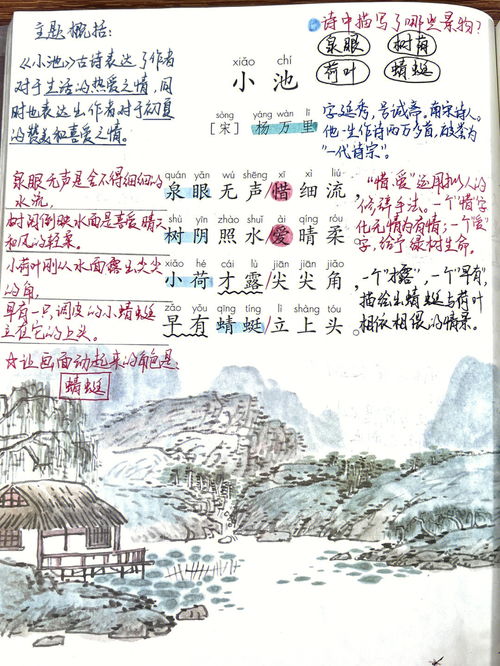 主题概括:
《小池》古诗表达了作者
对于生活的热爱之情,同
时也表达出作者对于初夏
的赞美和喜爱之情。
xiǎo chí
小 池
sòng yáng wàn lǐ
[宋] 杨万里
诗中描写了哪些景物?
泉眼 树荫
荷叶 蜻蜓
字廷秀,号诚斋,南宋诗人。
他一生作诗两万多首,被誉为
"一代诗宗"。
泉眼无声是舍不得细细的
水流,
树阴倒映水面是喜爱晴天
和风的轻柔。
小荷叶刚从水面露出尖尖
的角,
早有一只调皮的小蜻蜓
立在它的上头。
quán yǎn wú shēng xī xì liú
泉眼无声惜细流,
shù yīn zhào shuǐ ài qíng róu
树阴照水爱晴柔。
xiǎo hé cái lù jiān jiān jiǎo
小荷才露/尖尖角,
zǎo yǒu qīng tíng lì shàng tóu
早有蜻蜓/立上头。
"惜、爱"运用拟人的
修辞手法。一个"惜"字
化无情为有情;一个"爱"
字,给予绿树生命。
一个"才露",一个"早有",
描绘出蜻蜓与荷叶
相依相偎的情景。
☆让画面动起来的角色是:
蜻蜓